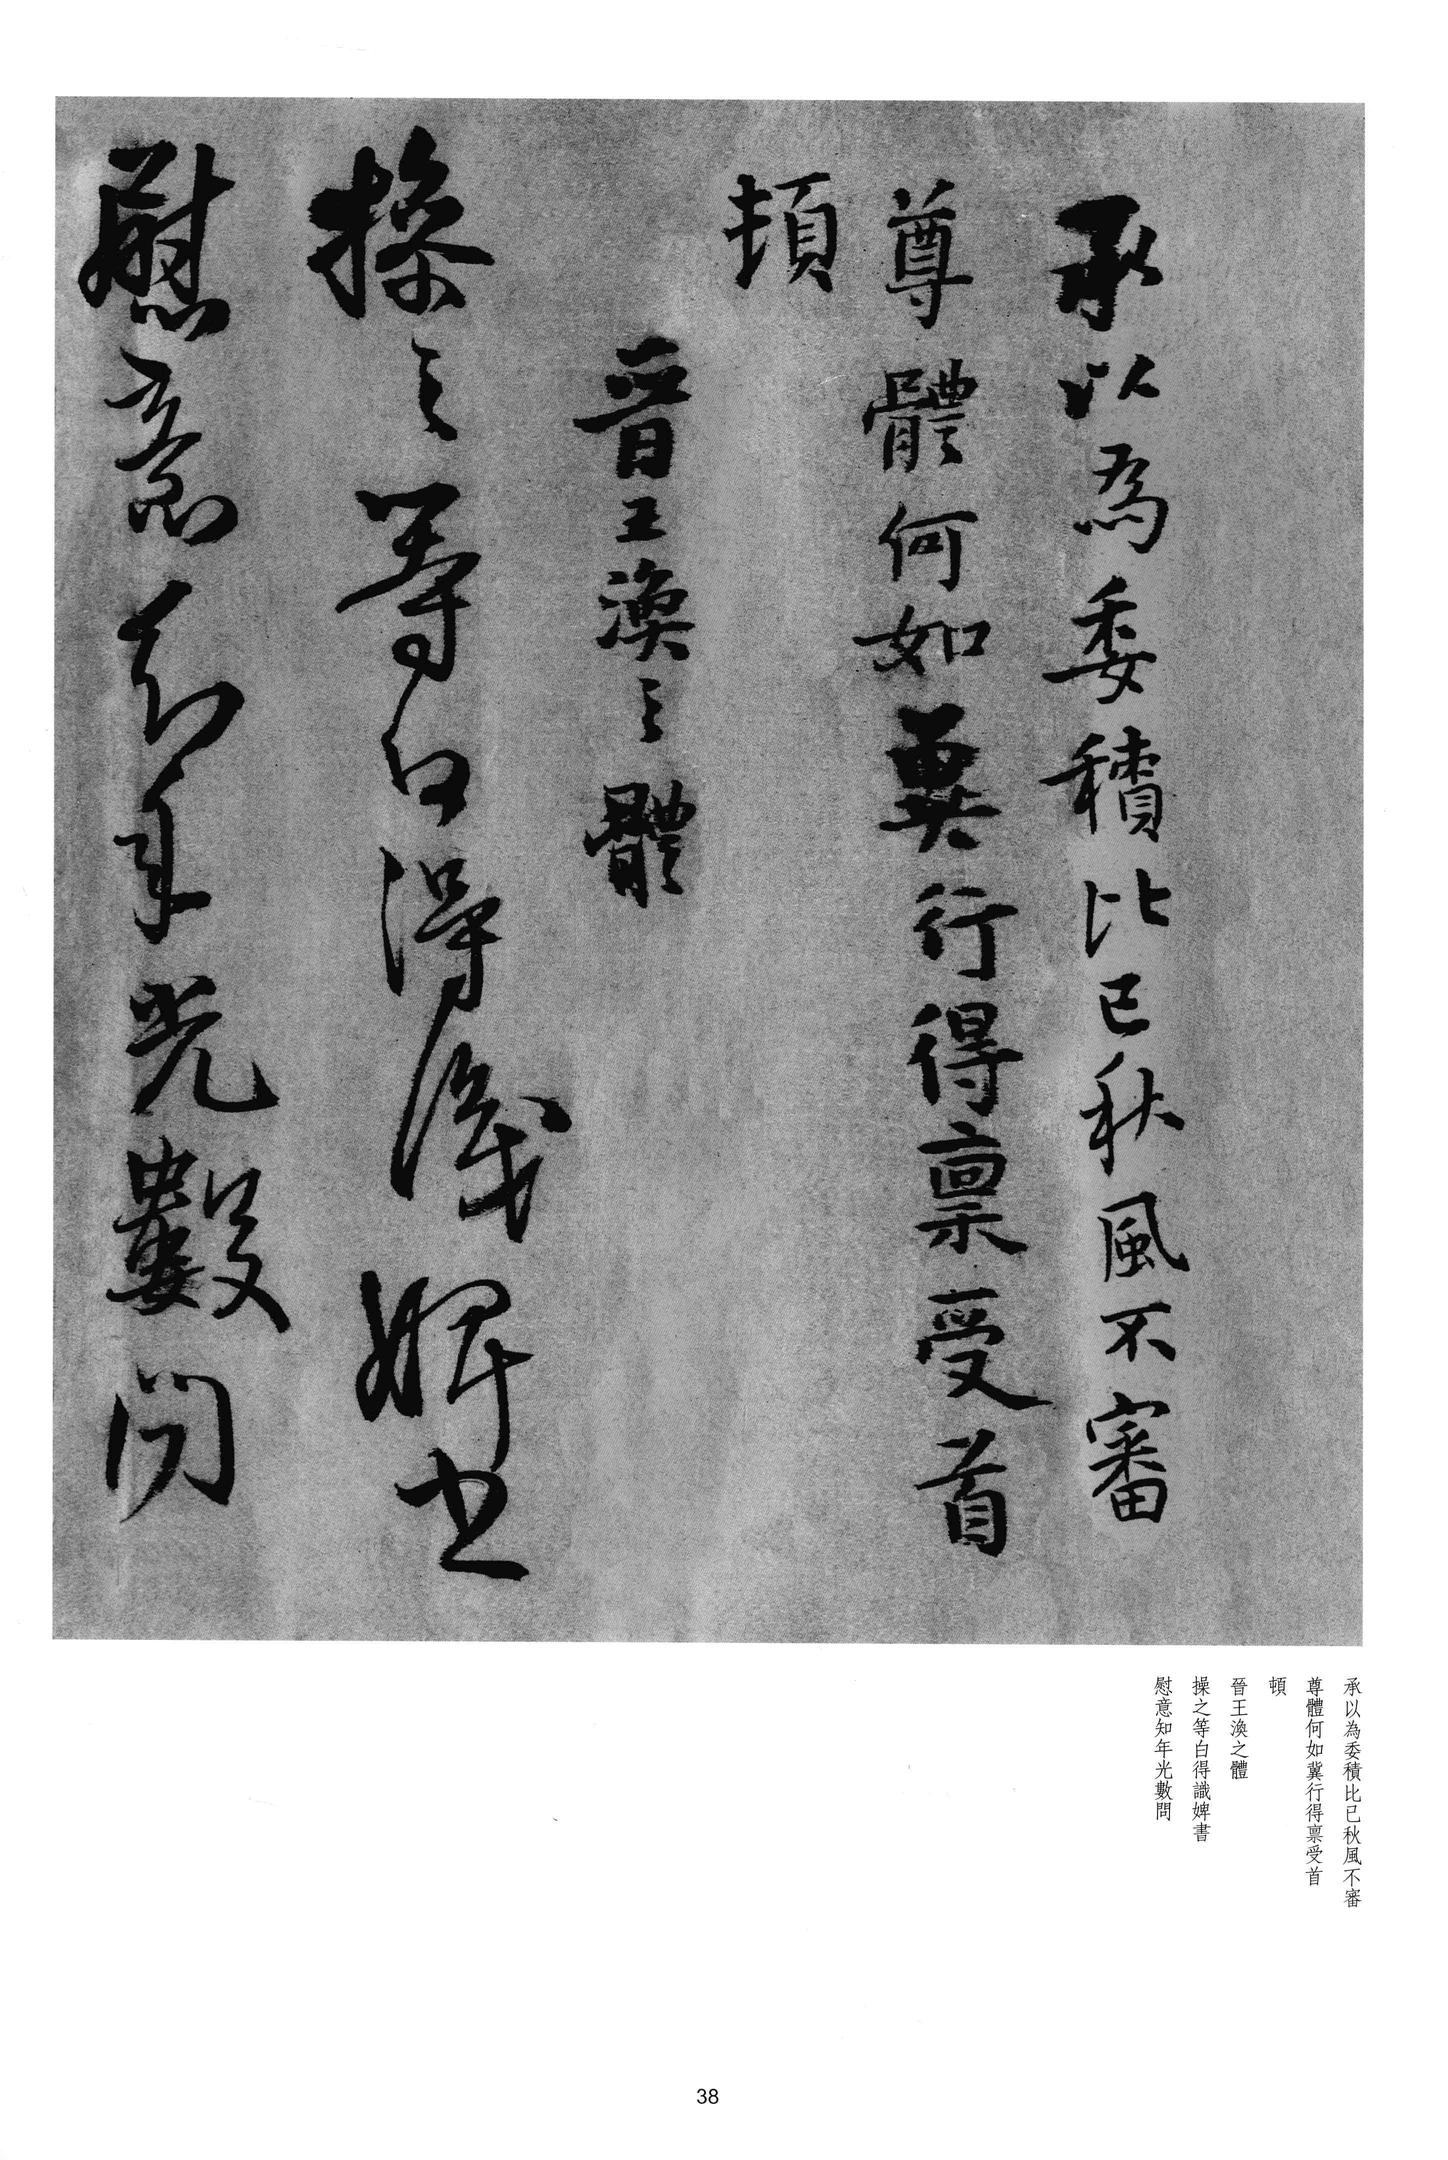 承以為委積比已秋風不審
尊體何如冀行得稟受首
頓
晉王渙之體
操之等白得識婢書
慰意知年光數問
承以為委積比已秋風不審
尊體何如冀行得稟受首
頓
晉王渙之體
操之等白得識婢書
慰意知年光數問
38